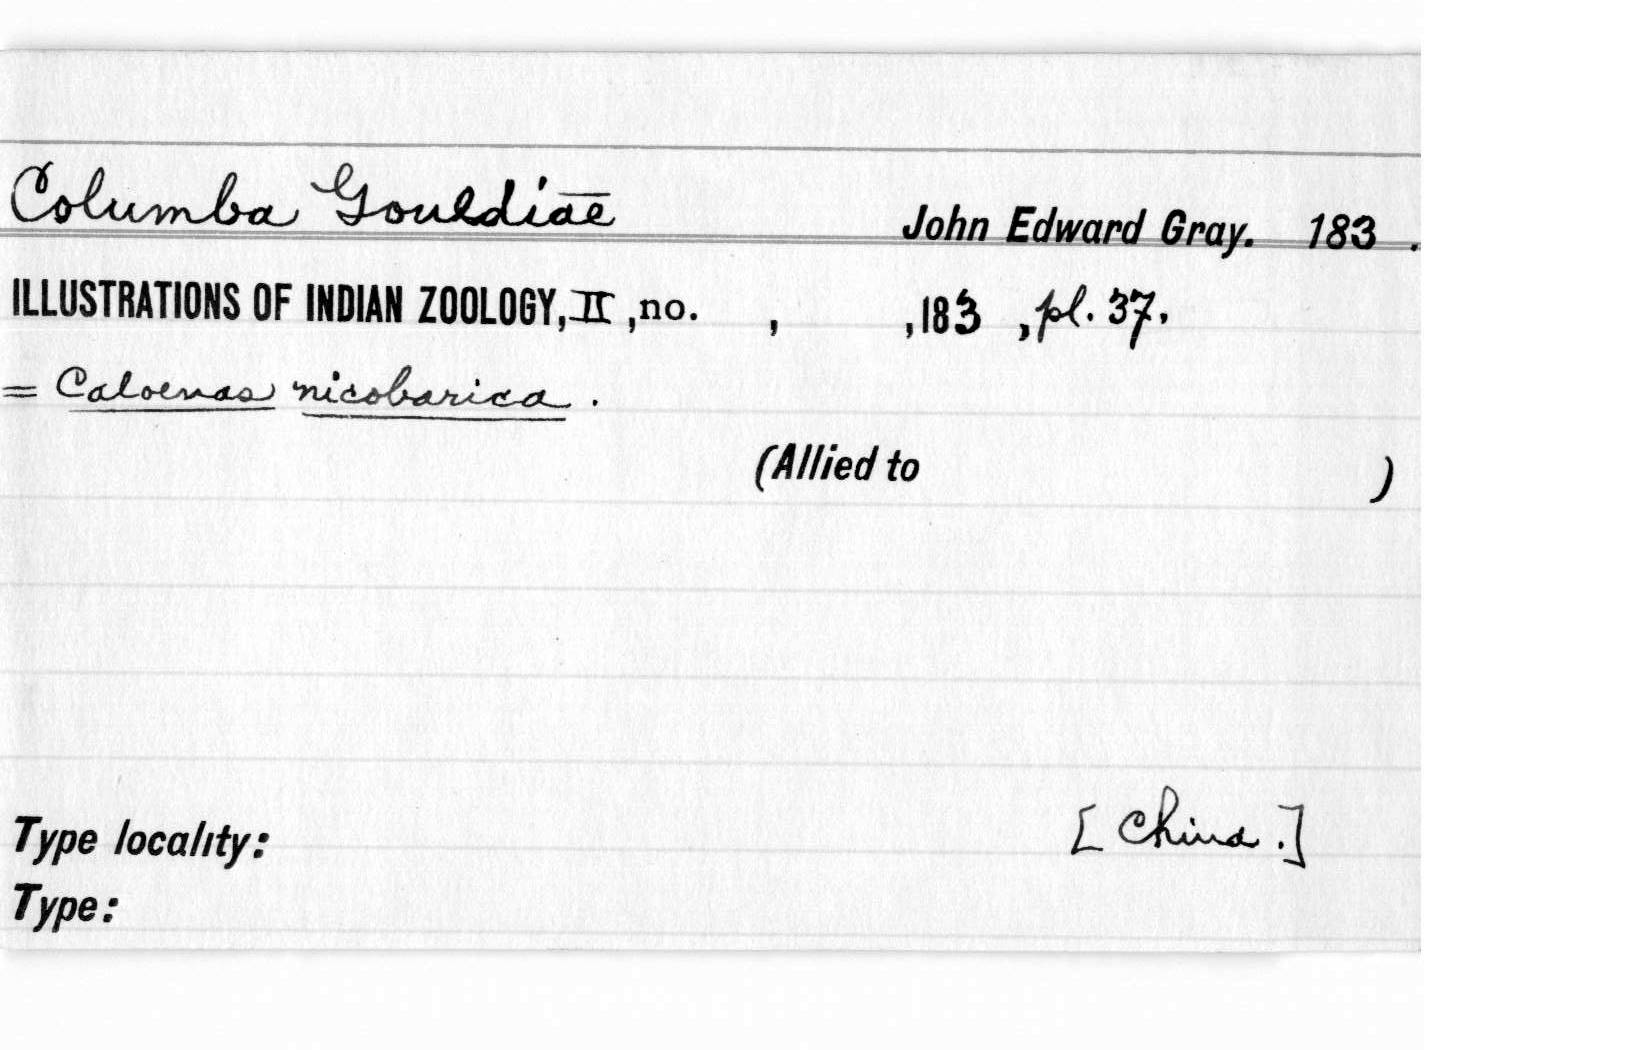 Columba Gouldiae John Edward Gray. 183 .
ILLUSTRATIONS OF INDIAN ZOOLOGY, II , no. , , 183 , pl. 37.
= Caloenas nicobarica .
(Allied to )
Type locality: [China.]
Type: